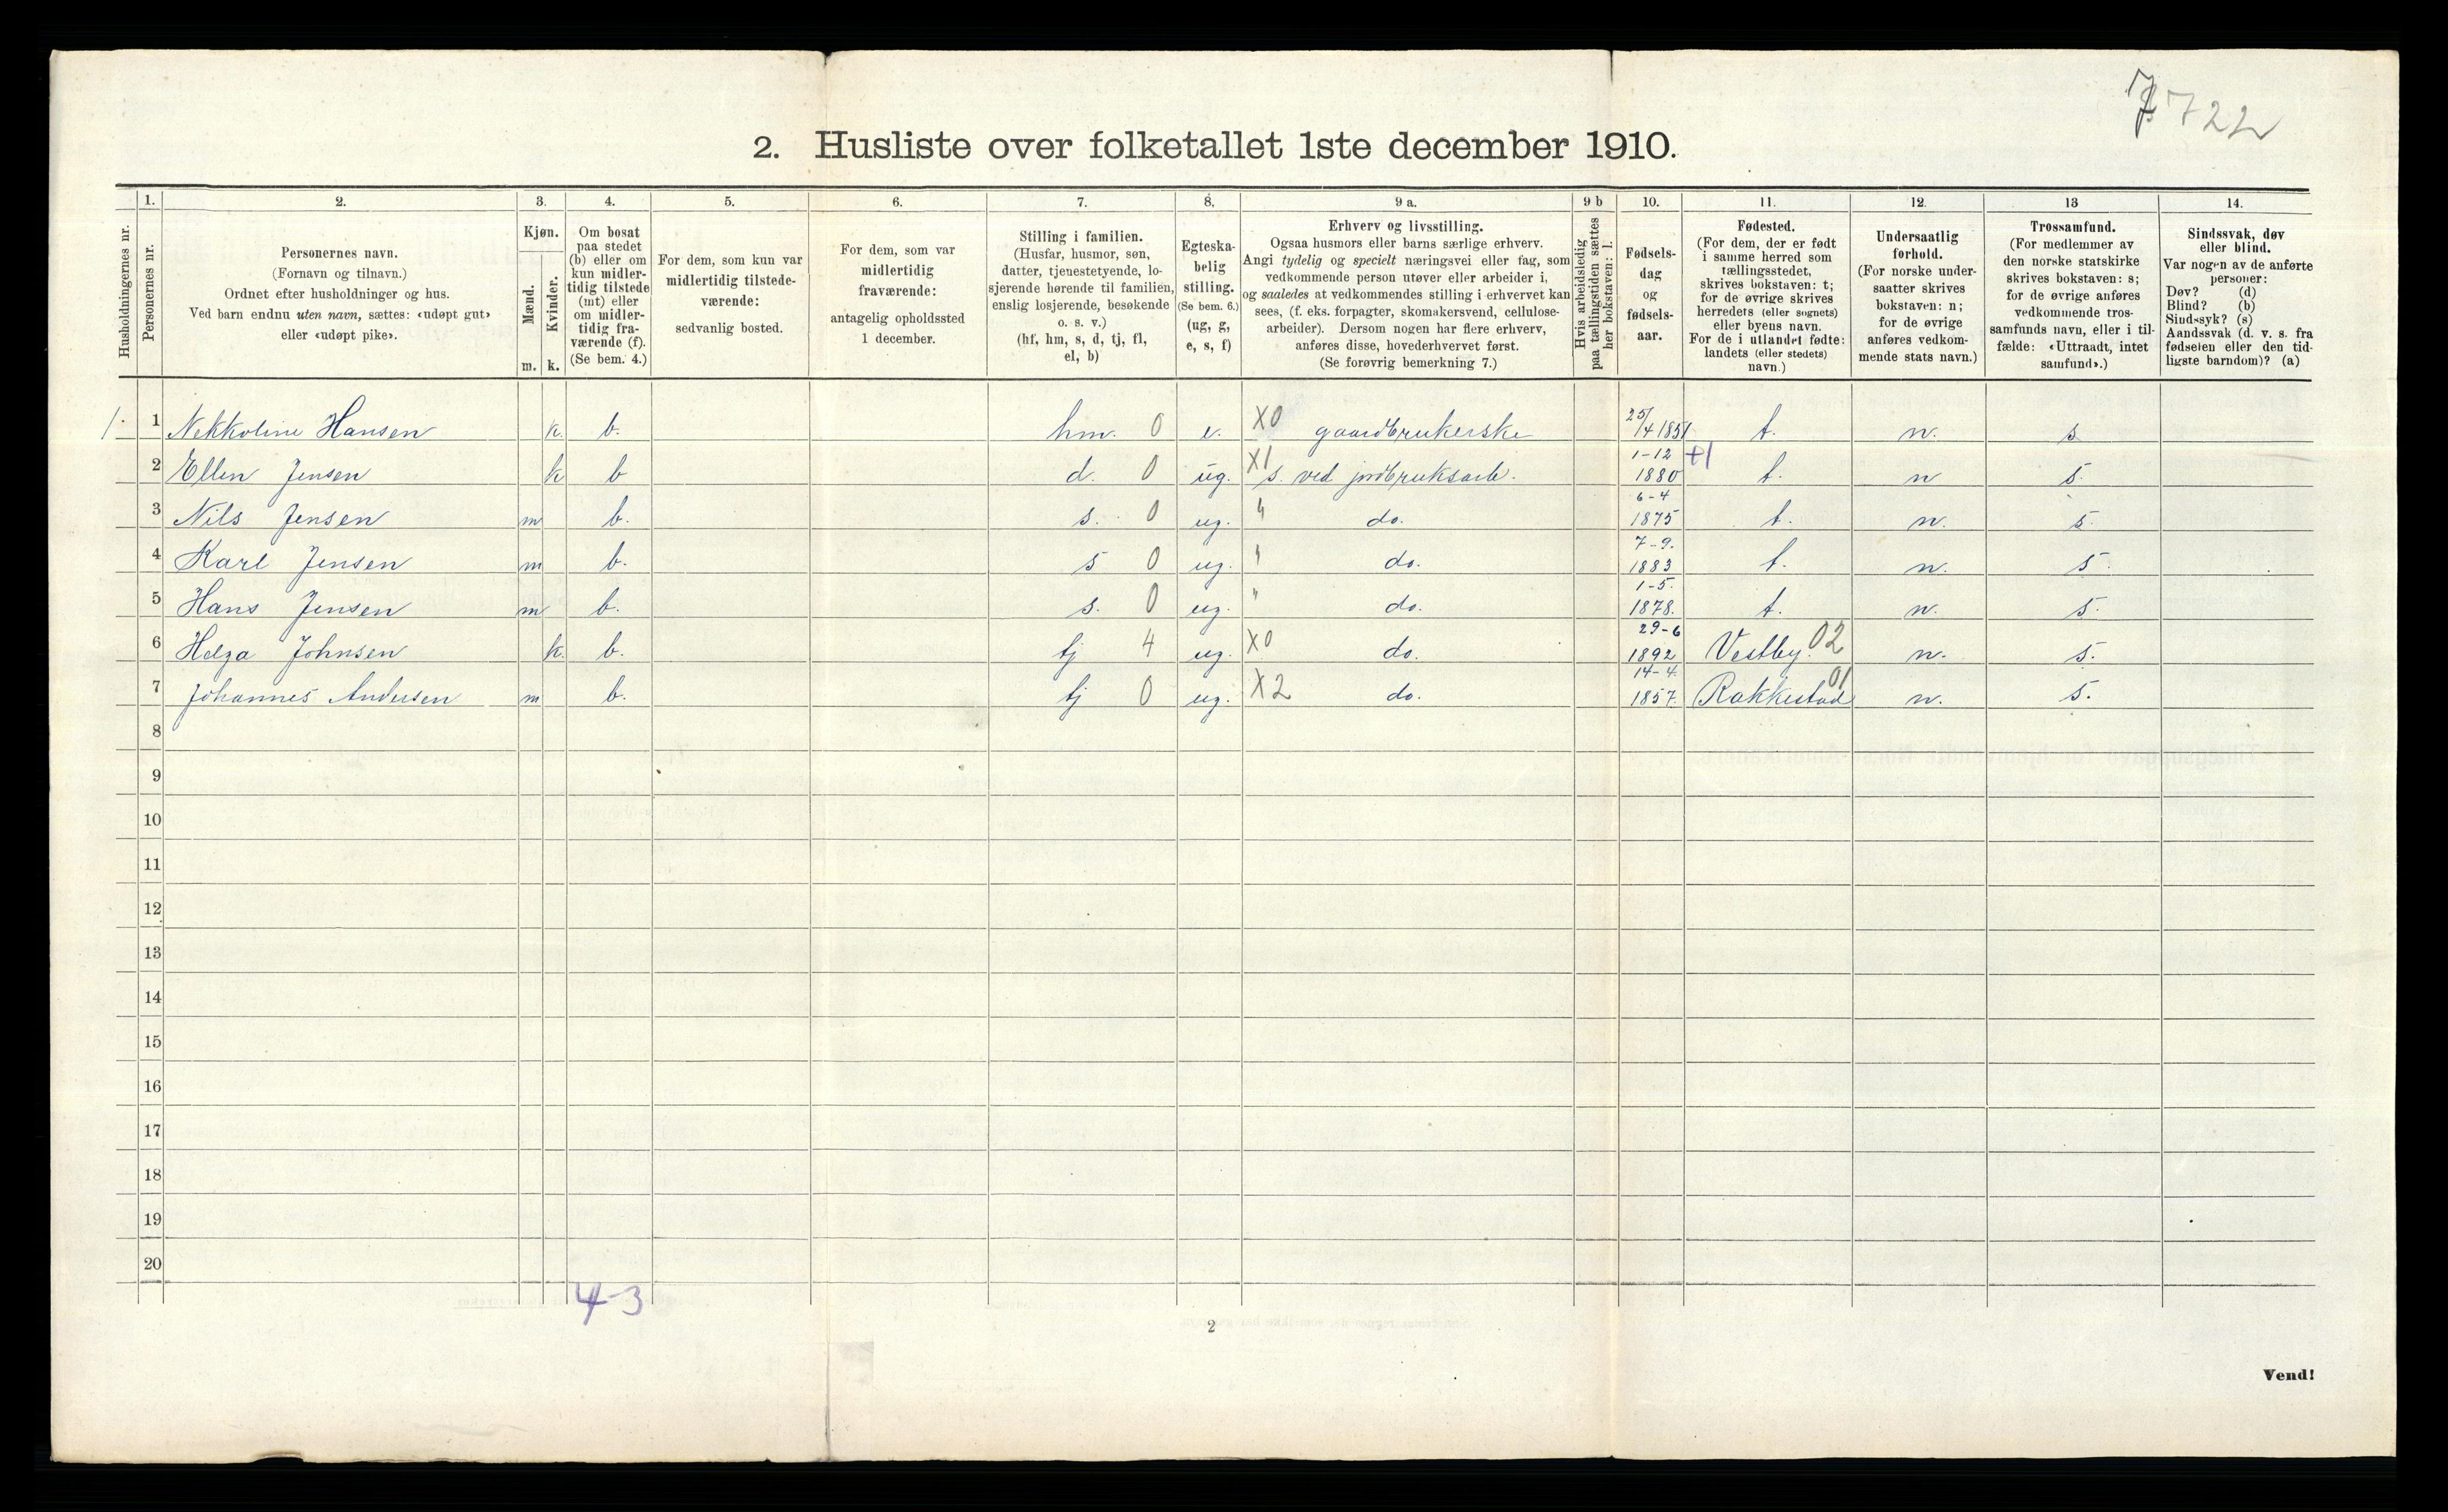 7722
2. Husliste over folketallet 1ste december 1910.
1. 2. 3. 4. 5. 6. 7. 8. 9 a. 9 b 10. 11. 12. 13 14.
Husholdningernes nr.
Personernes nr.
Personernes navn.
(Fornavn og tilnavn.)
Ordnet efter husholdninger og hus.
Ved barn endnu uten navn, sættes: «udøpt gut»
eller «udøpt pike».
Kjøn.
Mænd.
Kvinder.
m. k.
Om bosat
paa stedet
(b) eller om
kun midler-
tidig tilstede
(mt) eller
om midler-
tidig fra-
værende (f).
(Se bem. 4.)
For dem, som kun var
midlertidig tilstede-
værende:
sedvanlig bosted.
For dem, som var
midlertidig
fraværende:
antagelig opholdssted
1 december.
Stilling i familien.
(Husfar, husmor, søn,
datter, tjenestetyende, lo-
sjerende hørende til familien,
enslig losjerende, besøkende
o. s. v.)
(hf, hm, s, d, tj, fl,
el, b)
Egteska-
belig
stilling.
(Se bem. 6.)
(ug, g,
e, s, f)
Erhverv og livsstilling.
Ogsaa husmors eller barns særlige erhverv.
Angi tydelig og specielt næringsvei eller fag, som
vedkommende person utøver eller arbeider i,
og saaledes at vedkommendes stilling i erhvervet kan
sees, (f. eks. forpagter, skomakersvend, cellulose-
arbeider). Dersom nogen har flere erhverv,
anføres disse, hovederhvervet først.
(Se forøvrig bemerkning 7.)
Hvis arbeidsledig
paa tællingstiden sættes
her bokstaven: l.
Fødsels-
dag
og
fødsels-
aar.
Fødested.
(For dem, der er født
i samme herred som
tællingsstedet,
skrives bokstaven: t;
for de øvrige skrives
herredets (eller sognets)
eller byens navn.
For de i utlandet fødte:
landets (eller stedets)
navn.)
Undersaatlig
forhold.
(For norske under-
saatter skrives
bokstaven: n;
for de øvrige
anføres vedkom-
mende stats navn.)
Trossamfund.
(For medlemmer av
den norske statskirke
skrives bokstaven: s;
for de øvrige anføres
vedkommende tros-
samfunds navn, eller i til-
fælde: «Uttraadt, intet
samfund».)
Sindssvak, døv
eller blind.
Var nogen av de anførte
personer:
Døv? (d)
Blind? (b)
Sindssyk? (s)
Aandssvak (d. v. s. fra
fødselen eller den tid-
ligste barndom)? (a)
1. 1 Nekkoline Hansen k. b. hm. 0 e. X0 gaardbrukerske 25/4 1851 t. n. s
2 Ellen Jensen k b d. 0 ug. X1 s. ved jordbruksarb. 1-12 1880 +1 t. n s.
3 Nils Jensen m b. s. 0 ug. " do. 6-4 1875 t. n. s
4 Karl Jensen m b. s 0 ug. " do. 7-9. 1883 t. n. s.
5 Hans Jensen m b. s. 0 ug. " do. 1-5. 1878. t. n. s.
6 Helga Johnsen k. b. tj 4 ug. X0 do. 29-6 1892 Vestby. 02 n. s.
7 Johannes Andersen m b. tj 0 ug. X2 do. 14-4. 1857. Rakkestad 01 n. s.
8
9
10
11
12
13
14
15
16
17
18
19
20
4-3
2
Vend!